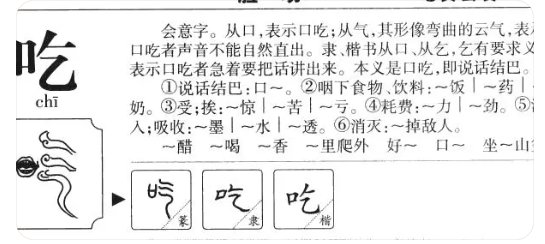 会意字。从口,表示口吃;从气,其形像弯曲的云气,表
口吃者声音不能自然直出。隶、楷书从口、从乞,乞有要求义
表示口吃者急着要把话讲出来。本义是口吃,即说话结巴。
吃
chī
①说话结巴:口～。②咽下食物、饮料:～饭|～药|
奶。③受;挨:～惊|～苦|～亏。④耗费:～力|～劲。⑤
入;吸收:～墨|～水|～透。⑥消灭:～掉敌人。
～醋 ～喝 ～香 ～里爬外 好～ 口～ 坐～山
篆
吃 隶
吃 楷